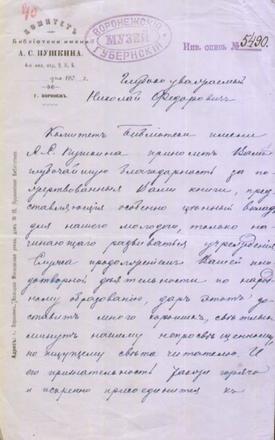 40
КОМИТЕТЪ
Библіотеки имени
А. С. ПУШКИНА
Г. ВОРОНЕЖЪ.
ВОРОНЕЖСКІЙ
МУЗЕЙ
ГУБЕРНСКІЙ
Инв. опись № 5490.
Глубоко уважаемый
Николай Федоровичъ
Комитетъ Библіотеки имени
А. С. Пушкина приноситъ Вамъ
глубочайшую благодарность за по-
жертвованныя Вами книги, пред-
ставляющія особенно цѣнный вкладъ
для нашего молодого, только на-
чинающаго развиваться учрежденія.
Вашей пло-
дотворной дѣятельности по народ-
ному образованію, даръ этотъ до-
ставитъ много хорошихъ, свѣтлыхъ
минутъ нашему непросвѣщенному,
но ищущему свѣта читателю. И
его признательность горячо
и искренно присоединится къ